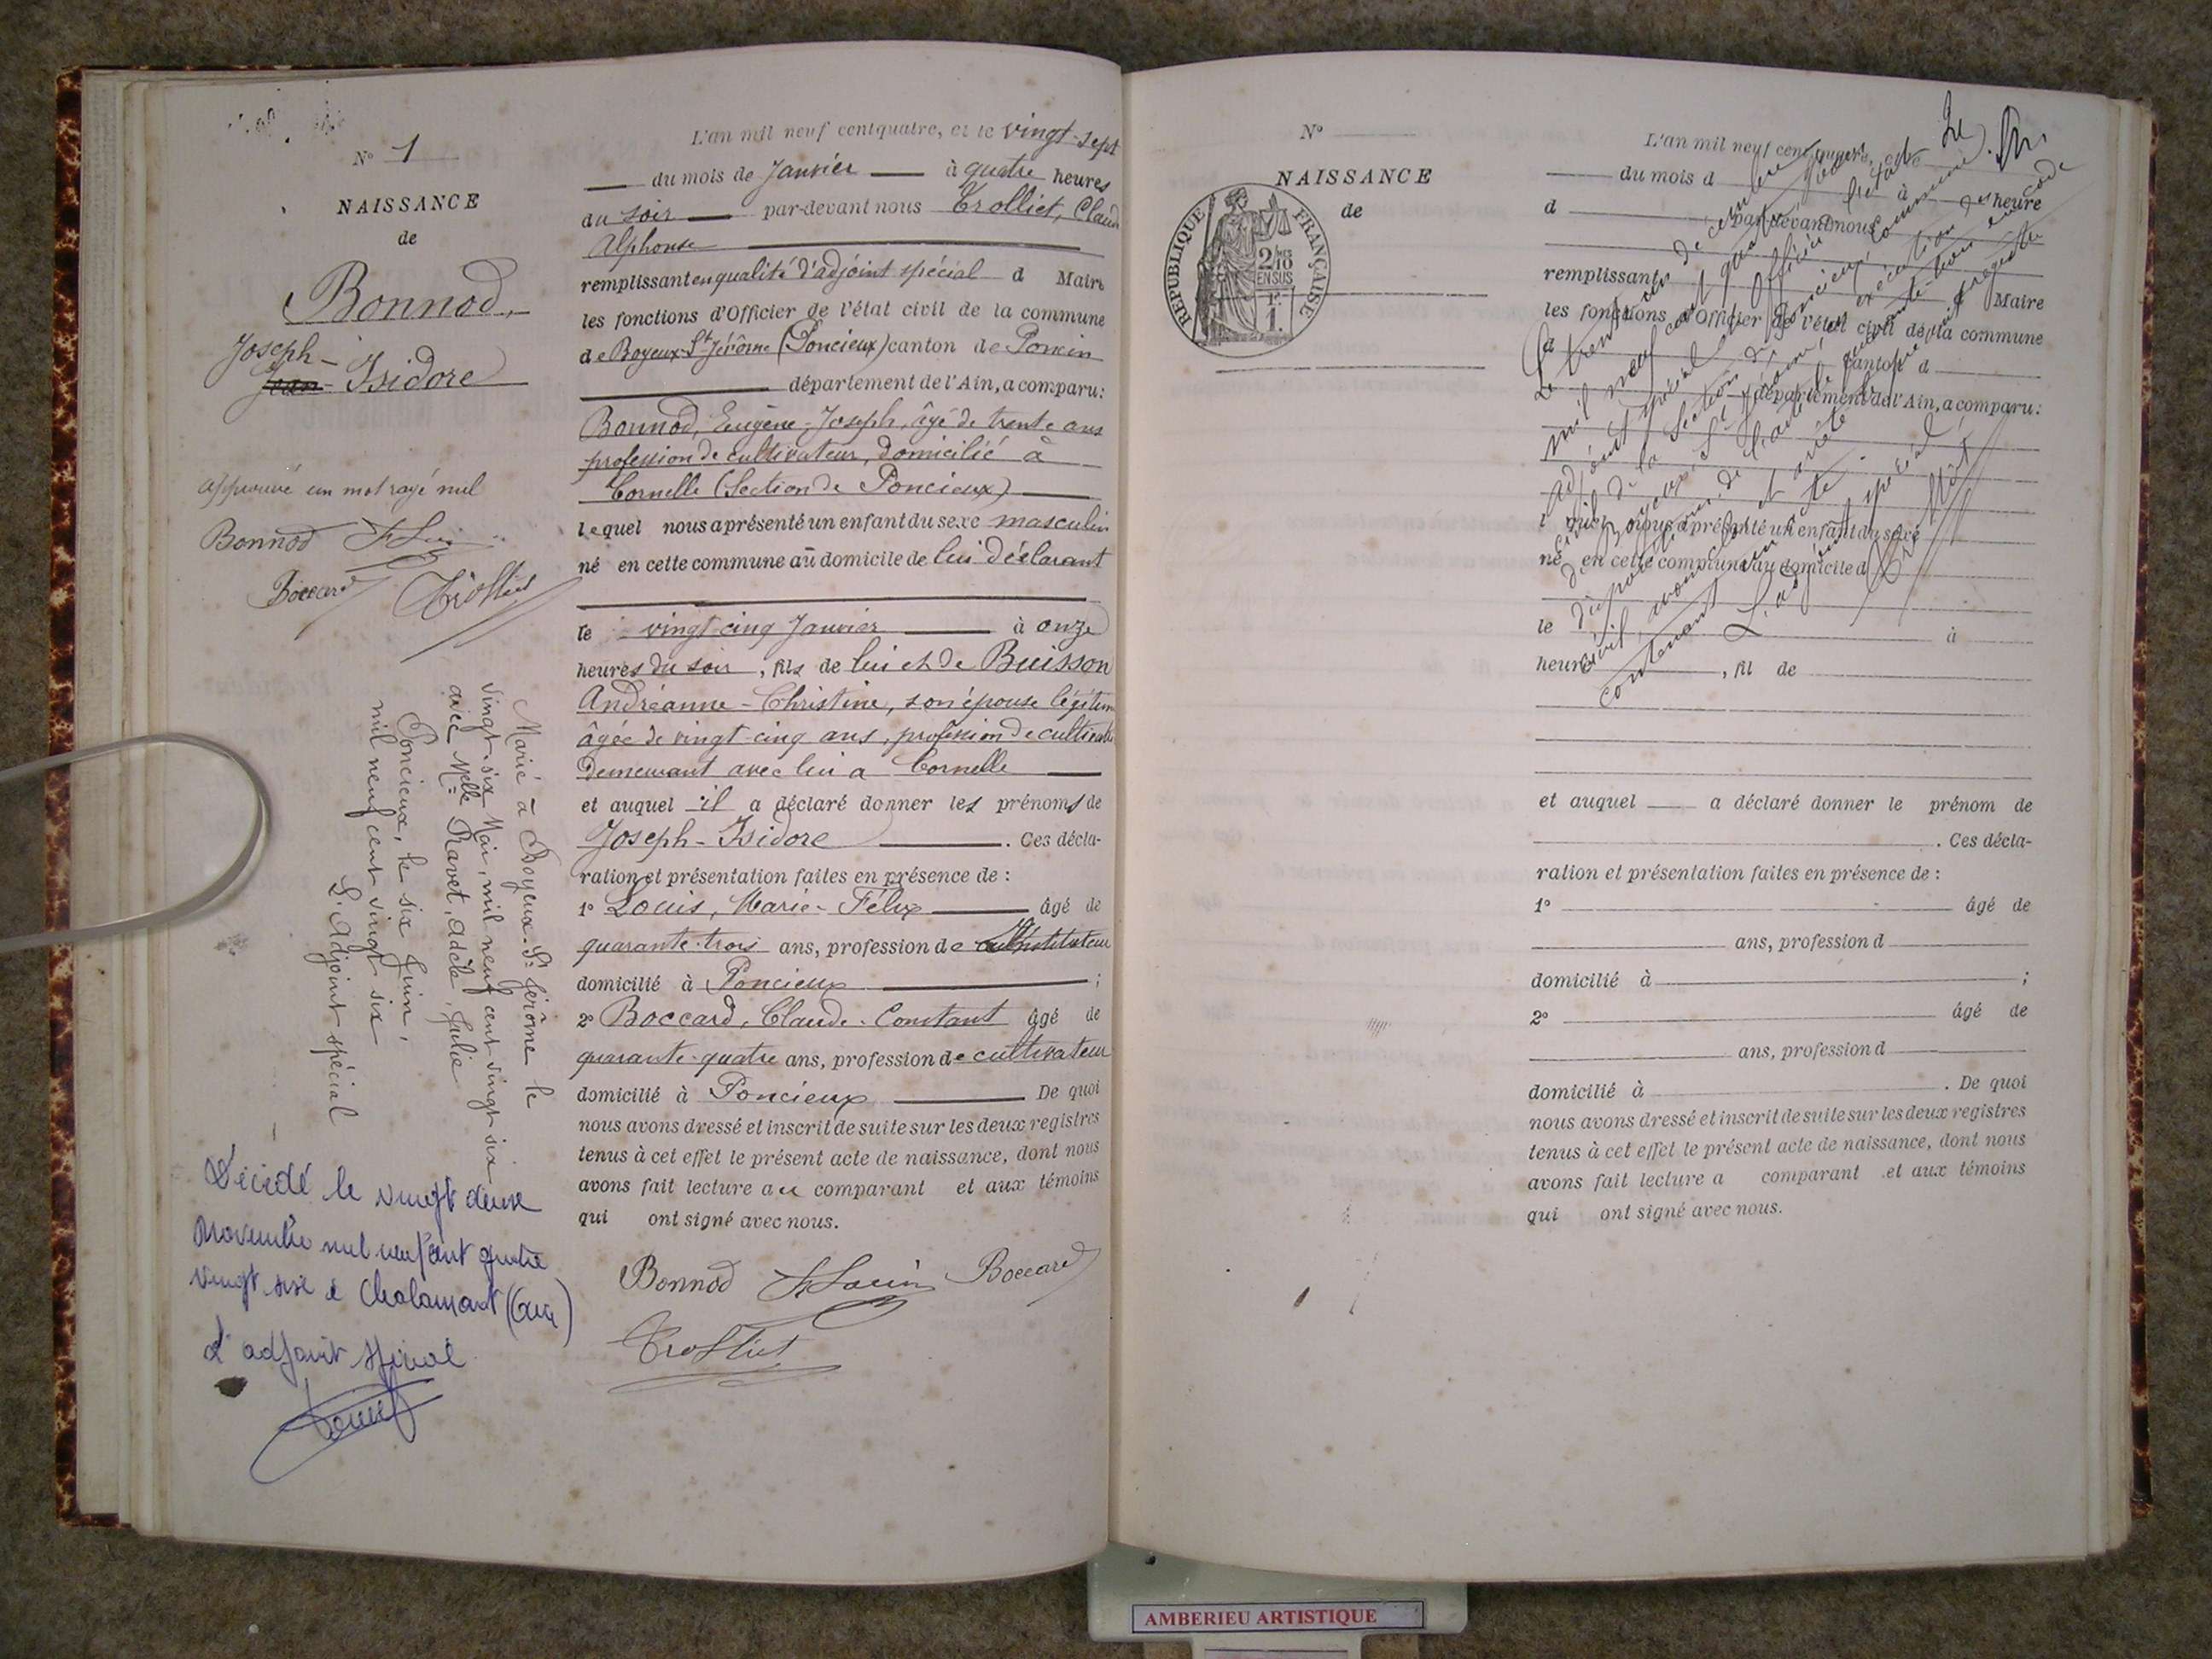 N° 1
NAISSANCE
de
Bonnod,
Joseph-
Jean-Isidore
approuvé un mot rayé nul
Bonnod
Boccard Trolliet
Marié à Boyeux-St Jérôme le
vingt-six Mai, mil neuf cent vingt six
avec Melle Ravet, Adèle, Julie
Poncieux, le six Juin,
mil neuf cent vingt six
L'Adjoint spécial
Décédé le vingt deux
Novembre mil neuf cent quatre
vingt six à Chalamont (Ain)
L'adjoint spécial
L'an mil neuf cent quatre, et le vingt-sept
du mois de Janvier à quatre heures
du soir par-devant nous Trolliet, Claude
Alphonse
remplissant en qualité d'adjoint spécial d Maire
les fonctions d'Officier de l'état civil de la commune
de Boyeux-St Jérôme (Poncieux) canton de Poncin
département de l'Ain, a comparu:
Bonnod, Eugène-Joseph, âgé de trente ans
profession de cultivateur, domicilié à
Cornelle (Section de Poncieux)
lequel nous a présenté un enfant du sexe masculin
né en cette commune au domicile de lui déclarant
le vingt-cinq Janvier à onze
heures du soir, fils de lui et de Buisson
Andréanne-Christine, son épouse légitime
âgée de vingt cinq ans, profession de
demeurant avec lui a Cornelle
et auquel il a déclaré donner les prénoms de
Joseph-Isidore . Ces décla-
ration et présentation faites en présence de :
1° Louis, Marie-Félix âgé de
quarante-trois ans, profession de Instituteur
domicilié à Poncieux ;
2° Boccard, Claude-Constant âgé de
quarante-quatre ans, profession de cultivateur
domicilié à Poncieux De quoi
nous avons dressé et inscrit de suite sur les deux registres
tenus à cet effet le présent acte de naissance, dont nous
avons fait lecture au comparant et aux témoins
qui ont signé avec nous.
Bonnod Boccard
Trolliet
N°
NAISSANCE
de
RÉPUBLIQUE FRANÇAISE
2/10
EN SUS
1 F.
L'an mil neuf cent quatre, et le
du mois d à heure
d par-devant nous
remplissant d Maire
les fonctions d'Officier de l'état civil de la commune
d canton d
département de l'Ain, a comparu:
l quel nous a présenté un enfant du sexe
né en cette commune au domicile d
le à
heure , fil de
Le trente un de
mil neuf cent quatre
adjoint spécial Officier de l'état
civil de la section de Poncieux, commune
de Boyeux-St Jérôme, en exécution des
dispositions de l'article du code
civil, avons clos et arrêté le présent registre
contenant un acte.
L'adjoint spécial
Trolliet
et auquel a déclaré donner le prénom de
. Ces décla-
ration et présentation faites en présence de :
1° âgé de
ans, profession d
domicilié à ;
2° âgé de
ans, profession d
domicilié à . De quoi
nous avons dressé et inscrit de suite sur les deux registres
tenus à cet effet le présent acte de naissance, dont nous
avons fait lecture a comparant et aux témoins
qui ont signé avec nous.
AMBERIEU ARTISTIQUE